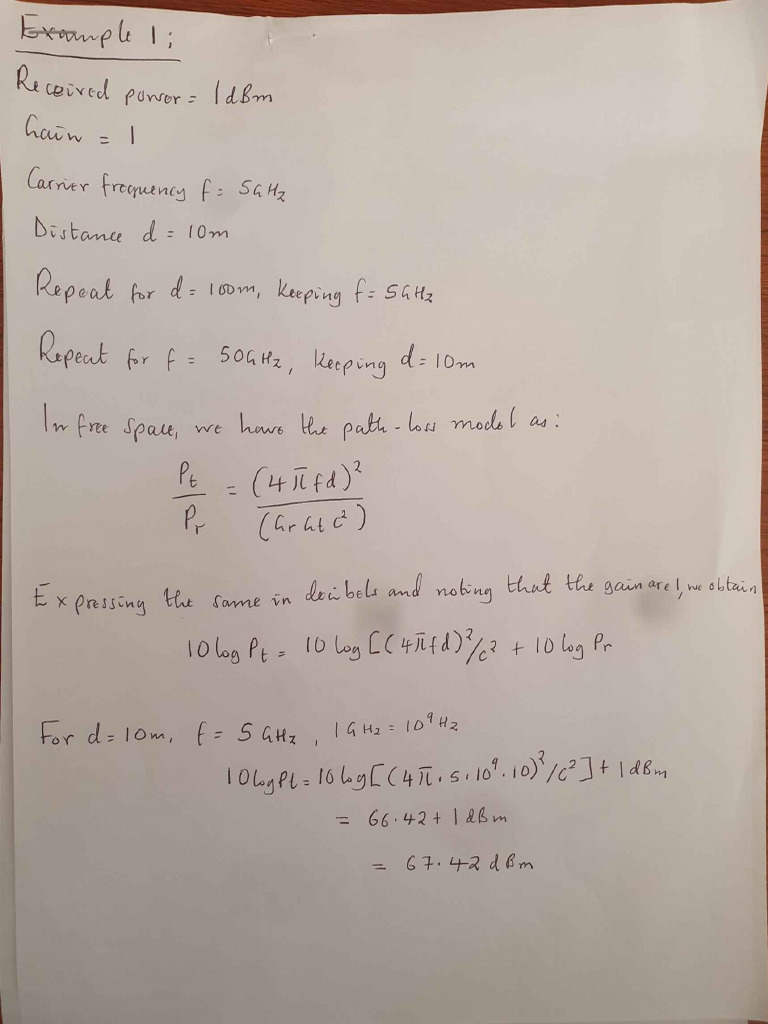 Example 1;
Received power = 1dBm
Gain = 1
Carrier frequency f = 5GHz
Distance d = 10m
Repeat for d = 100m, keeping f = 5GHz
Repeat for f = 50GHz, keeping d = 10m
In free space, we have the path-loss model as:
Pt/Pr = (4πfd)²/(GrGtc²)
Expressing the same in decibels and noting that the gain are 1, we obtain
10 log Pt = 10 log [(4πfd)²/c² + 10 log Pr
For d = 10m, f = 5 GHz, 1GHz = 10⁹Hz
10logPt = 10 log[(4π.5.10⁹.10)²/c²] + 1dBm
= 66.42 + 1dBm
= 67.42 dBm